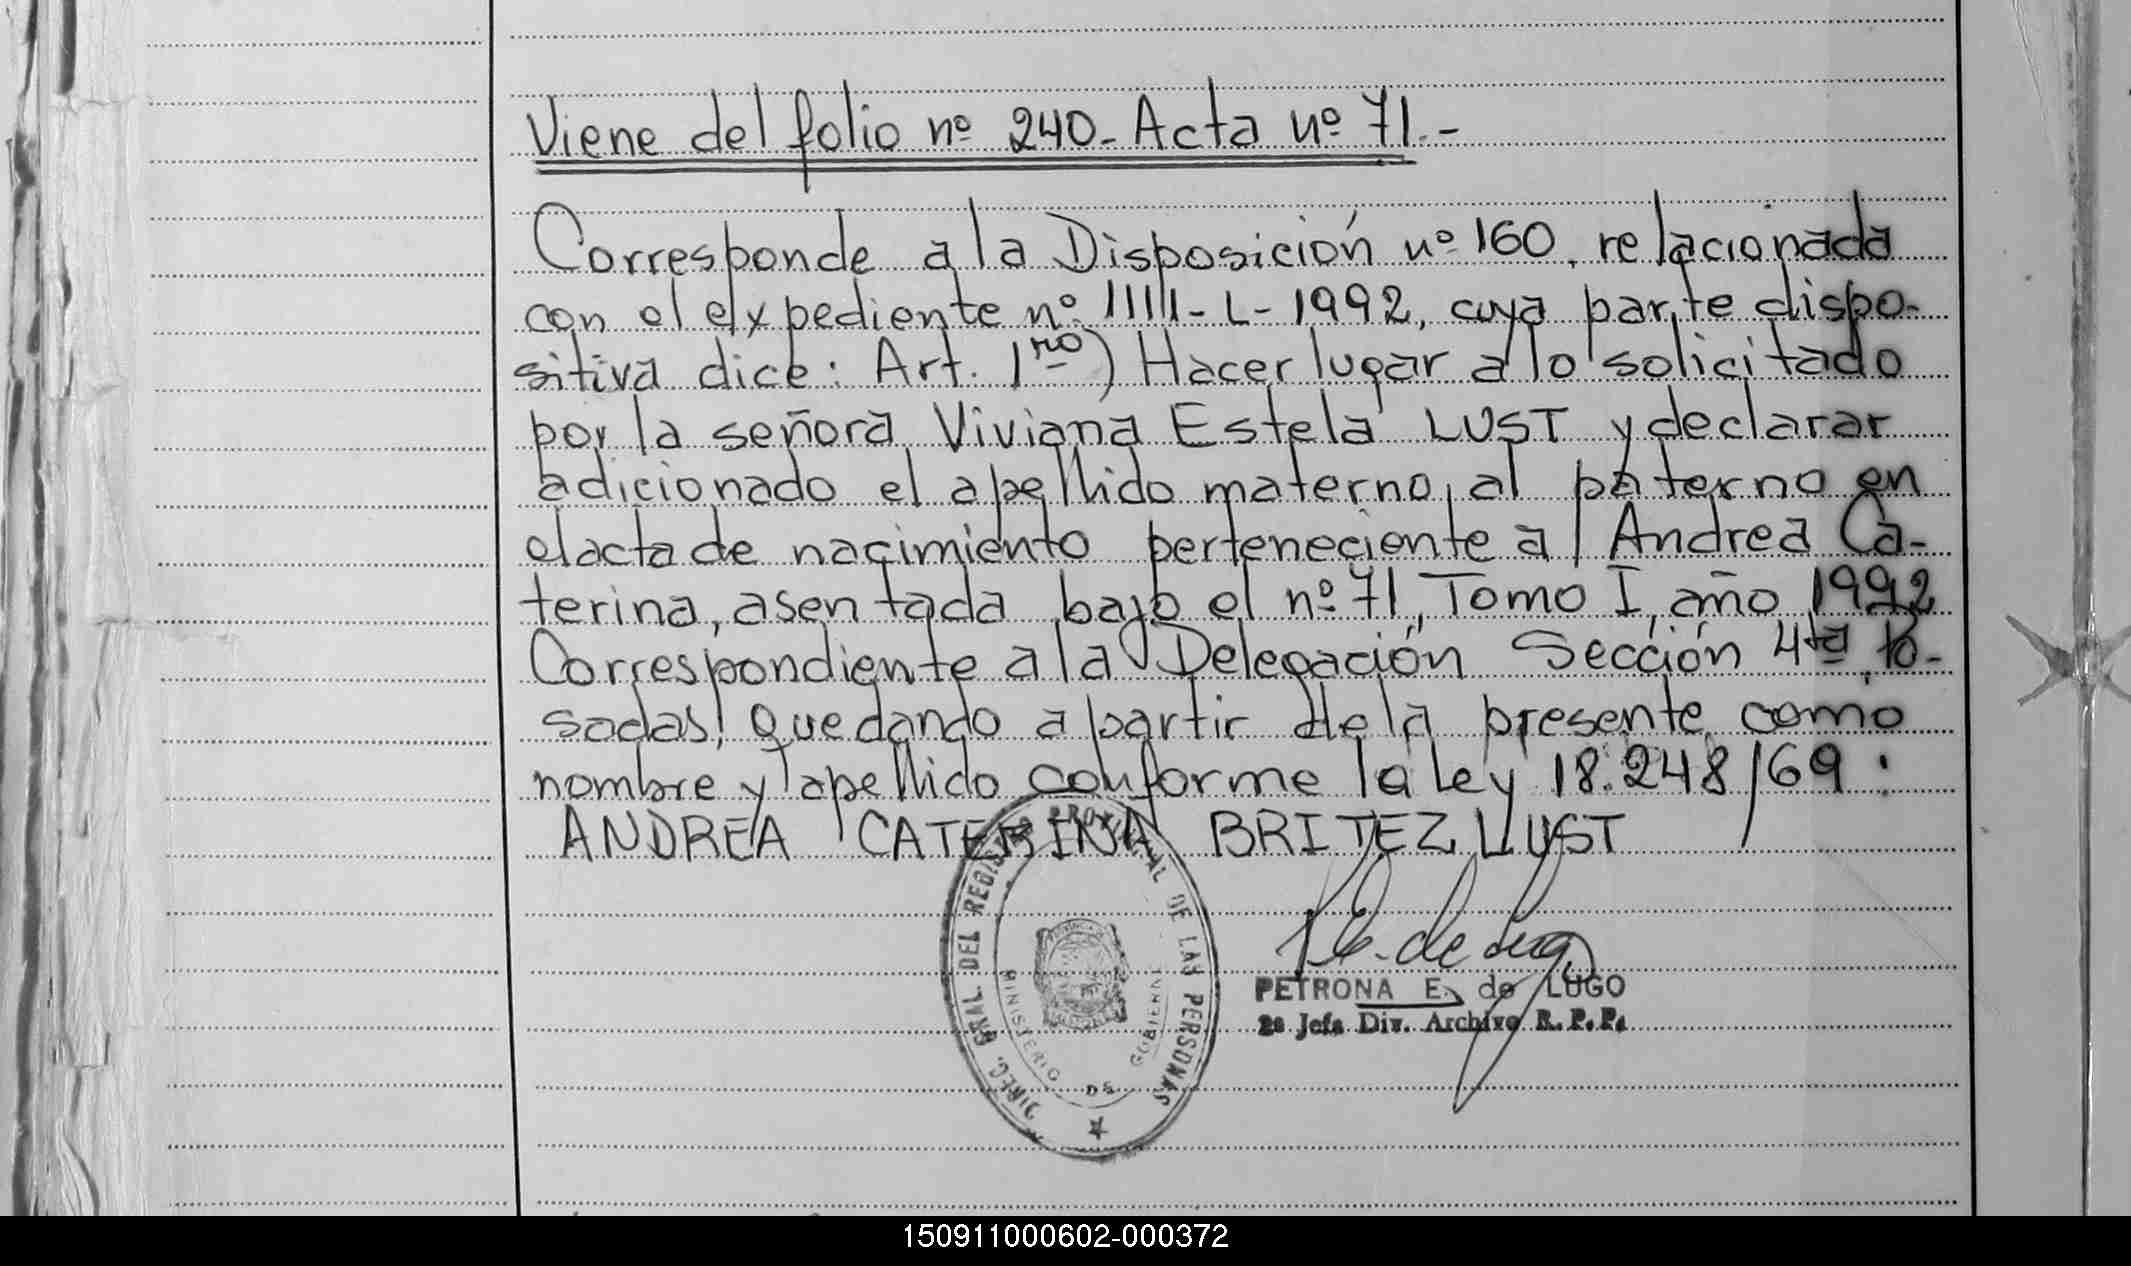 Viene del folio nº 240 - Acta nº 71.-
Corresponde a la Disposición nº 160, relacionada
con el expediente nº 1111-L-1992, cuya parte dispo-
sitiva dice: Art. 1ro) Hacer lugar a lo solicitado
por la señora Viviana Estela LUST y declarar
adicionado el apellido materno, al paterno en
el acta de nacimiento perteneciente a Andrea Ca-
terina, asentada bajo el nº 71, Tomo I, año 1992
Correspondiente a la Delegación Sección 4ta Po-
sadas, quedando a partir de la presente como
nombre y apellido conforme la Ley 18.248/69:
ANDREA CATERINA BRITEZ LUST
DIREC. GRAL. DEL REGISTRO PROVINCIAL DE LAS PERSONAS
MINISTERIO DE GOBIERNO
P.E. de Lugo
PETRONA E. de LUGO
2a Jefa Div. Archivo R. P. P.
150911000602-000372